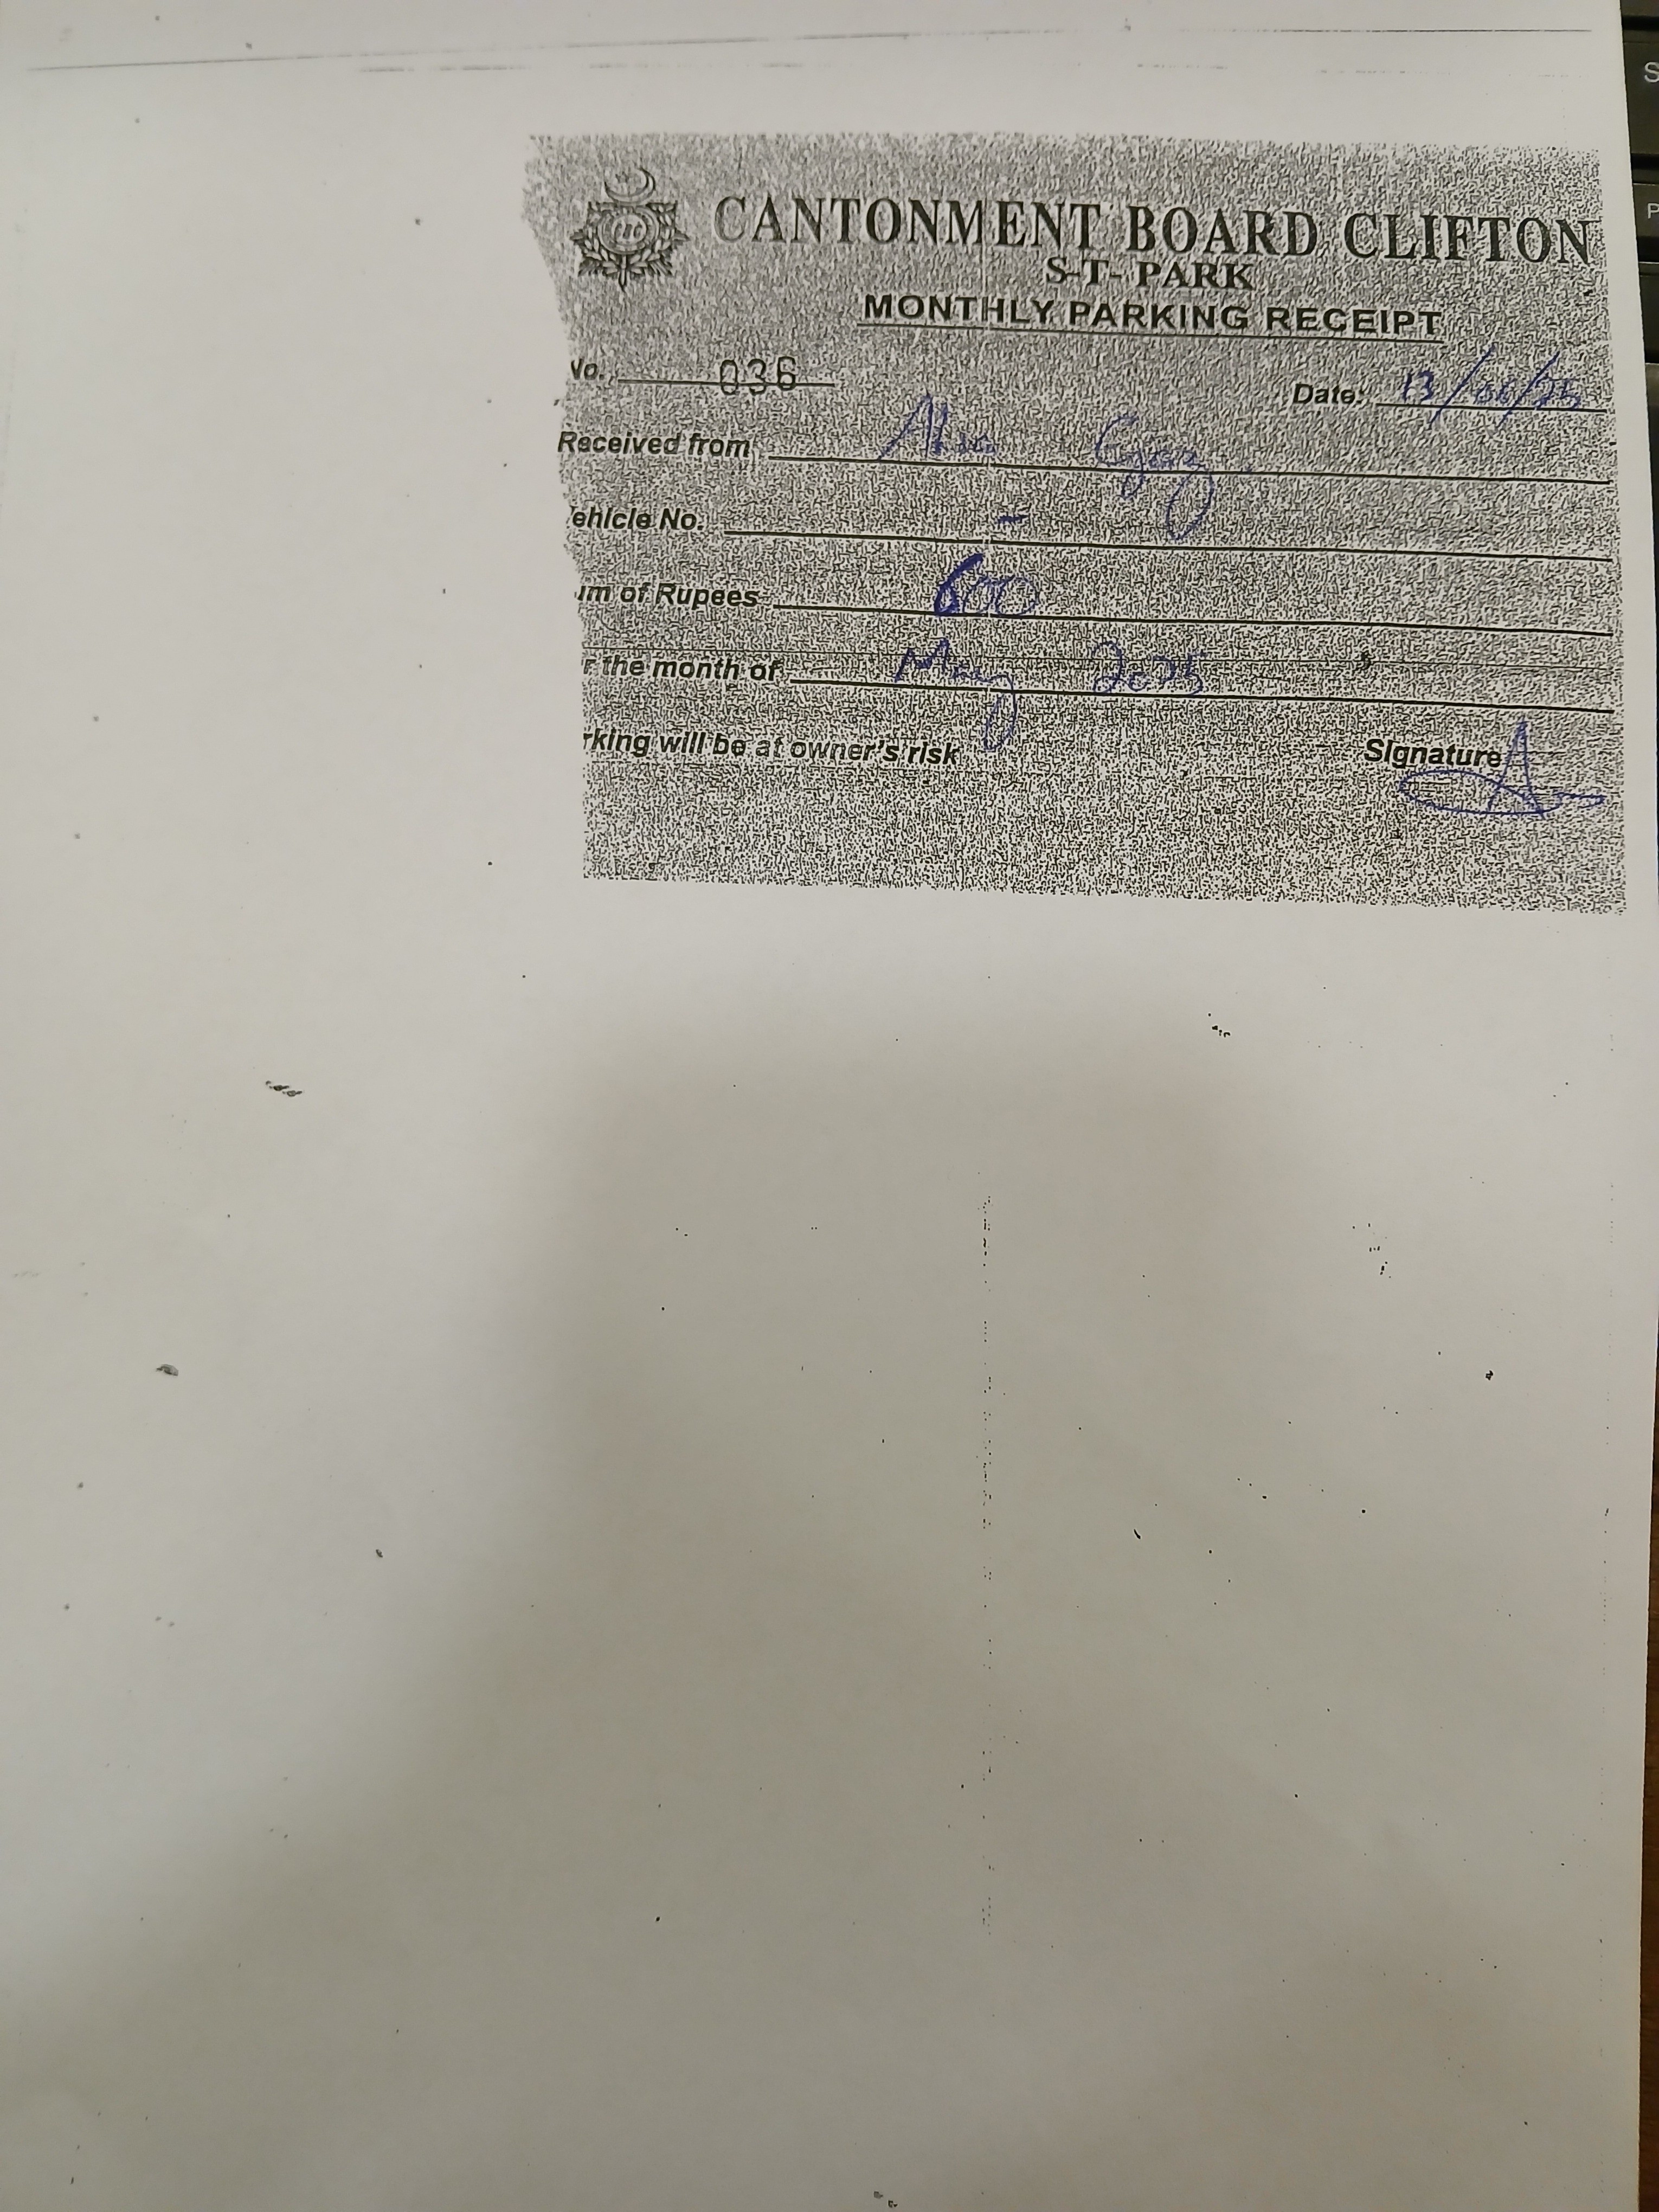 CANTONMENT BOARD CLIFTON
S-T- PARK
MONTHLY PARKING RECEIPT
No. 036
Date: 13/06/25
Received from
ehicle No. -
um of Rupees 600
r the month of May 2025
rking will be at owner's risk
Signature
S
P